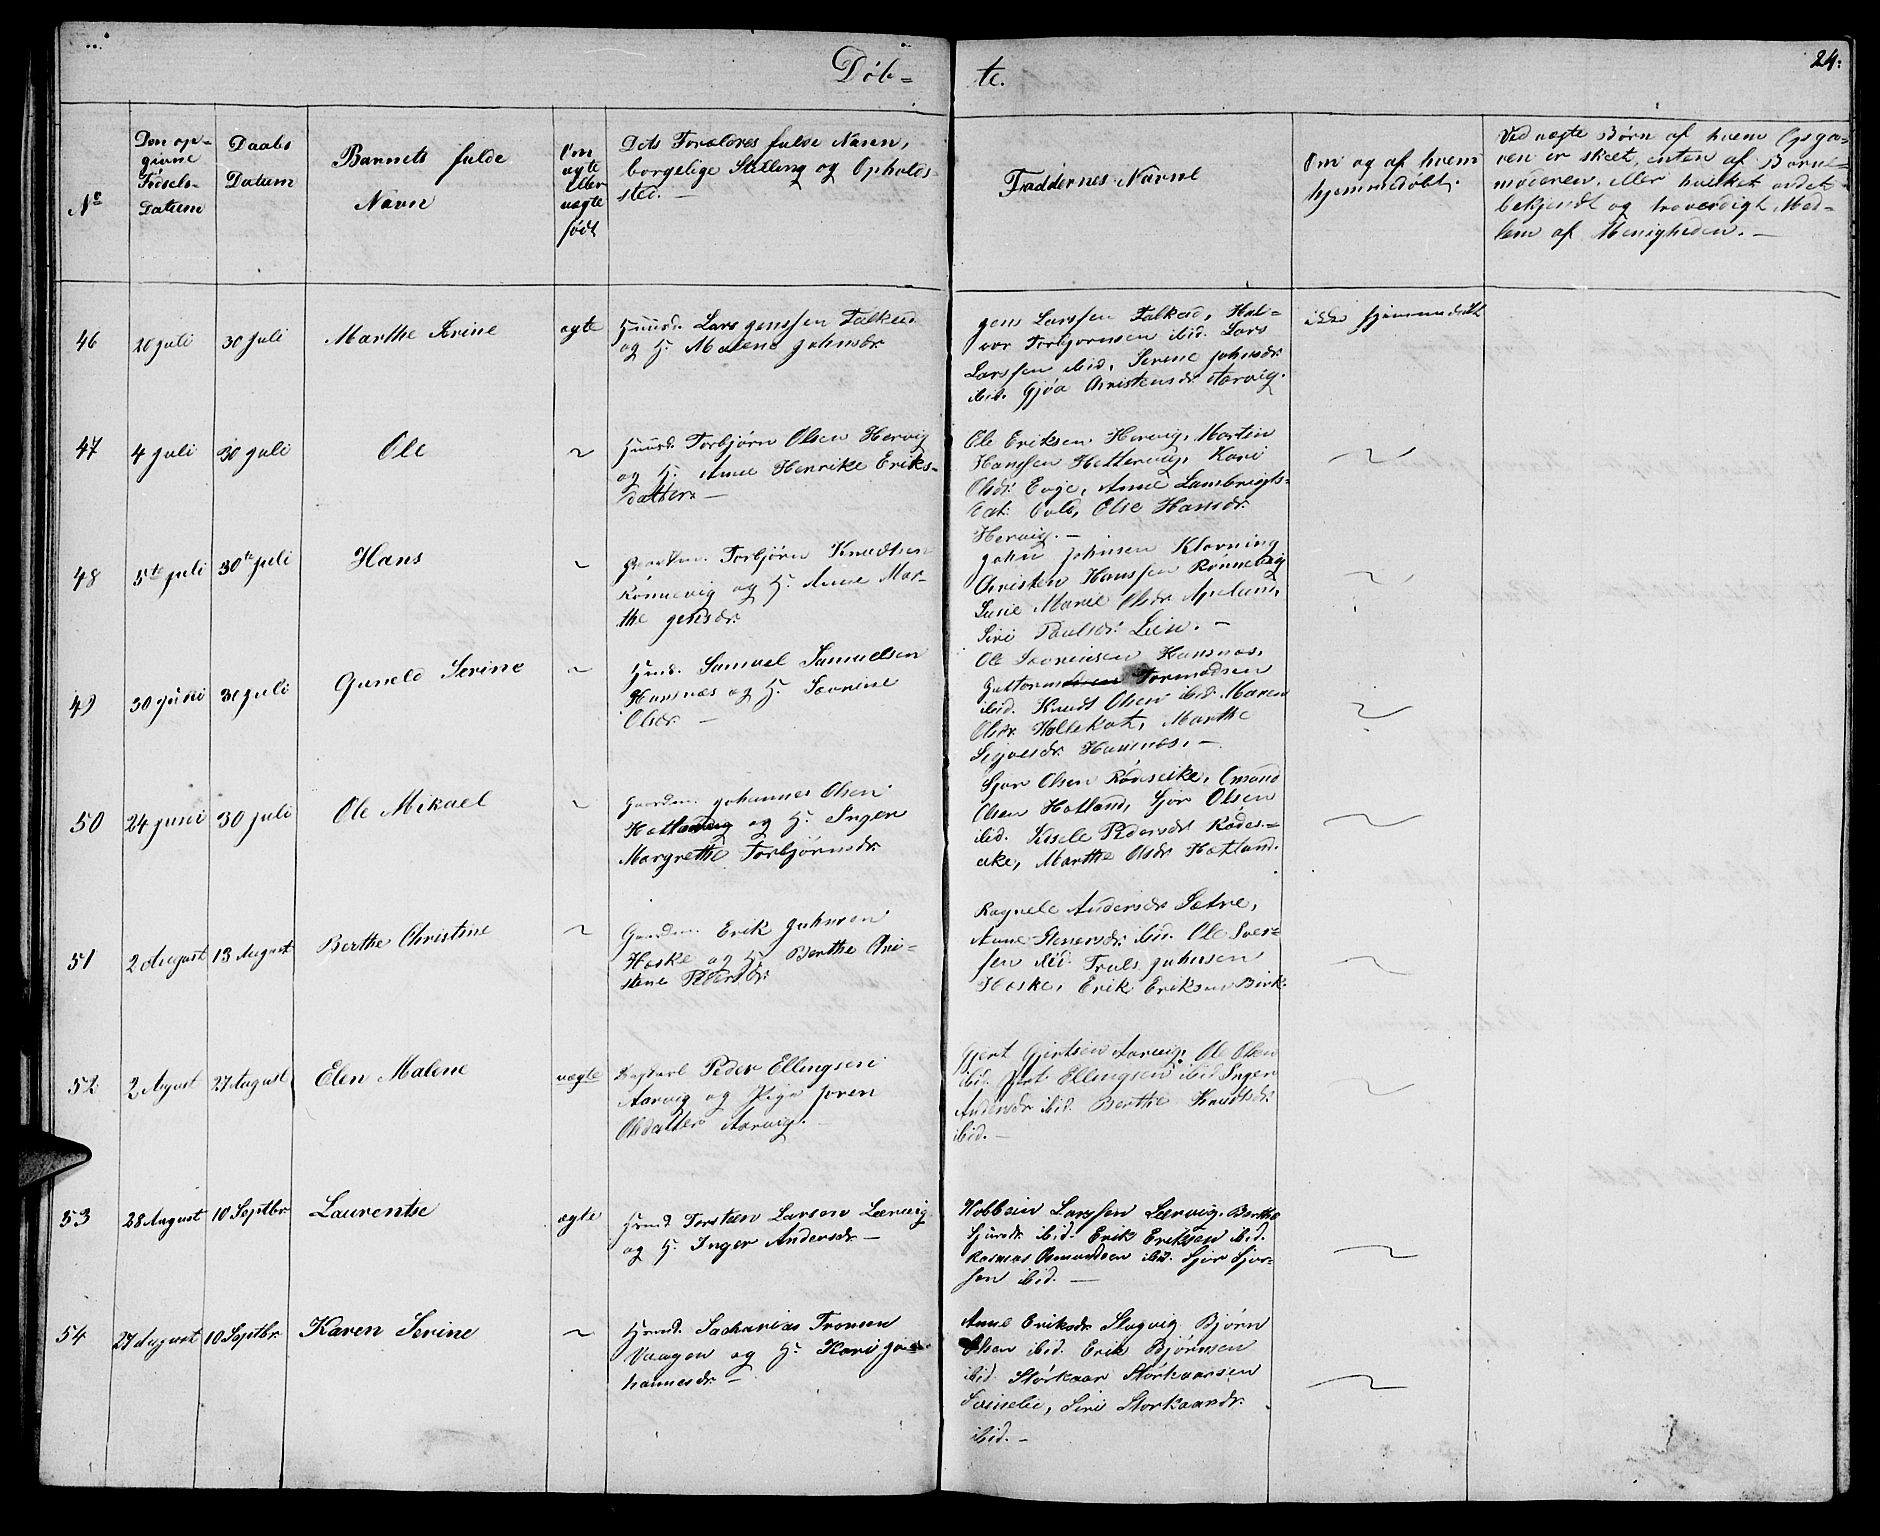 Døb-
te.
24.
No
Den op-
givne
Fødsels-
Datum
Daabs
Datum
Barnets fulde
Navn
Om
ægte
eller
uægte
født
Dets Forældres fulde Navn,
borgelige Stilling og Opholds-
sted. -
Faddernes Navne
Om og af hvem
hjemmedøbt.
Ved uægte Børn af hvem Opga-
ven er skeet, enten af Barne-
moderen, eller hvilket andet
bekjendt og troværdigt Med-
lem af Menigheden. -
46
20 juli
30 juli
Marthe Serine
ægte
Huusd. Lars Jenssen Falkeid
og H. Malene Johnsdr.
Jens Larssen Falkeid, Hal-
vor Torbjørnsen ibid. Lars
Larssen ibid, Serine Johnsdr.
ibid. Gjøa Christensdr. Aarvig.
ikke hjemmedøbt
47
4 juli
30 juli
Ole
~
Huusd. Torbjørn Olsen Hervig
og H. Anne Henrike Eriks-
datter. -
Ole Eriksen Hervig, Martin
Hanssen Hettervig, Kari
Olsdr. Eage, Anne Lambrigts-
dat. Vold, Else Hansdr.
Hervig. -
~
48
5te juli
30te juli
Hans
~
Gaardm. Torbjørn Knudtsen
Rønnevig og H. Anne Mar-
the Jensdr.
John Johnsen Klovning
Christen Hanssen Rønnevig
Susie Marie Olsdr. Apeland,
Siri Paulsdr. Lien. -
~
49
30 juni
30 juli
Guneld Serine
~
Huusd. Samuel Samuelsen
Hansnæs og H. Severine
Olsdr. -
Ole Severinsen Hansnæs,
Guttorm Tormodsen
ibid. Knudt Olsen ibid. Maren
Olsdr. Hollekat, Marthe
Sigvesdr. Hansnæs. -
~
50
24 juni
30 juli
Ole Mikael
~
Gaardm. Johannes Olsen
Hatland og H. Inger
Margrethe Torbjørnsdr.
Sjur Olsen Rødseike, Omund
Olsen Hatland, Sjur Olsen
ibid. Pedersdr. Rødes-
eike, Marthe Olsdr. Hatland.
~
51
2 August
13 August
Berthe Christine
~
Gaardm. Erik Johnsen
Hæske og H. Berthe Chri-
stene Pedersdr.
Ragnele Andersdr. Sætre,
Anne Stenersdr. ibid. Ole Iver-
sen ibid. Truls Johnsen
Hæske, Erik Eriksen Birk.
~
52
2 August
27 August
Elen Malene
uægte
Ungkarl Peder Ellingsen
Aarvig og Pige Joren
Olsdatter Aarvig.
Gjert Gjertsen Aarvig, Ole Olsen
ibid. Ellingsen ibid Inger
Andersdr. ibid. Berthe Knudtsdr.
ibid. -
~
53
28 August
10 Septbr
Laurentse
ægte
Huusd. Torsten Larsen Lærvig
og H. Inger Andersdr. -
Kolbein Larssen Lærvig, Berthe
Sjursdr. ibid. Erik Eriksen ibid.
Rasmus Osmundsen ibid. Sjur Sjur-
sen ibid. -
~
54
27 August
10 Septbr
Karen Serine
~
Huusd. Sacharias Tronsen
Vaagen og H. Kari Jo-
hannesdr. -
Anne Eriksdr. Slogvig Bjørn
Olsen ibid. Erik Bjørnsen
ibid. Størkaar Størkaarsen
Svinelie, Siri Storkaarsdr.
ibid. -
~